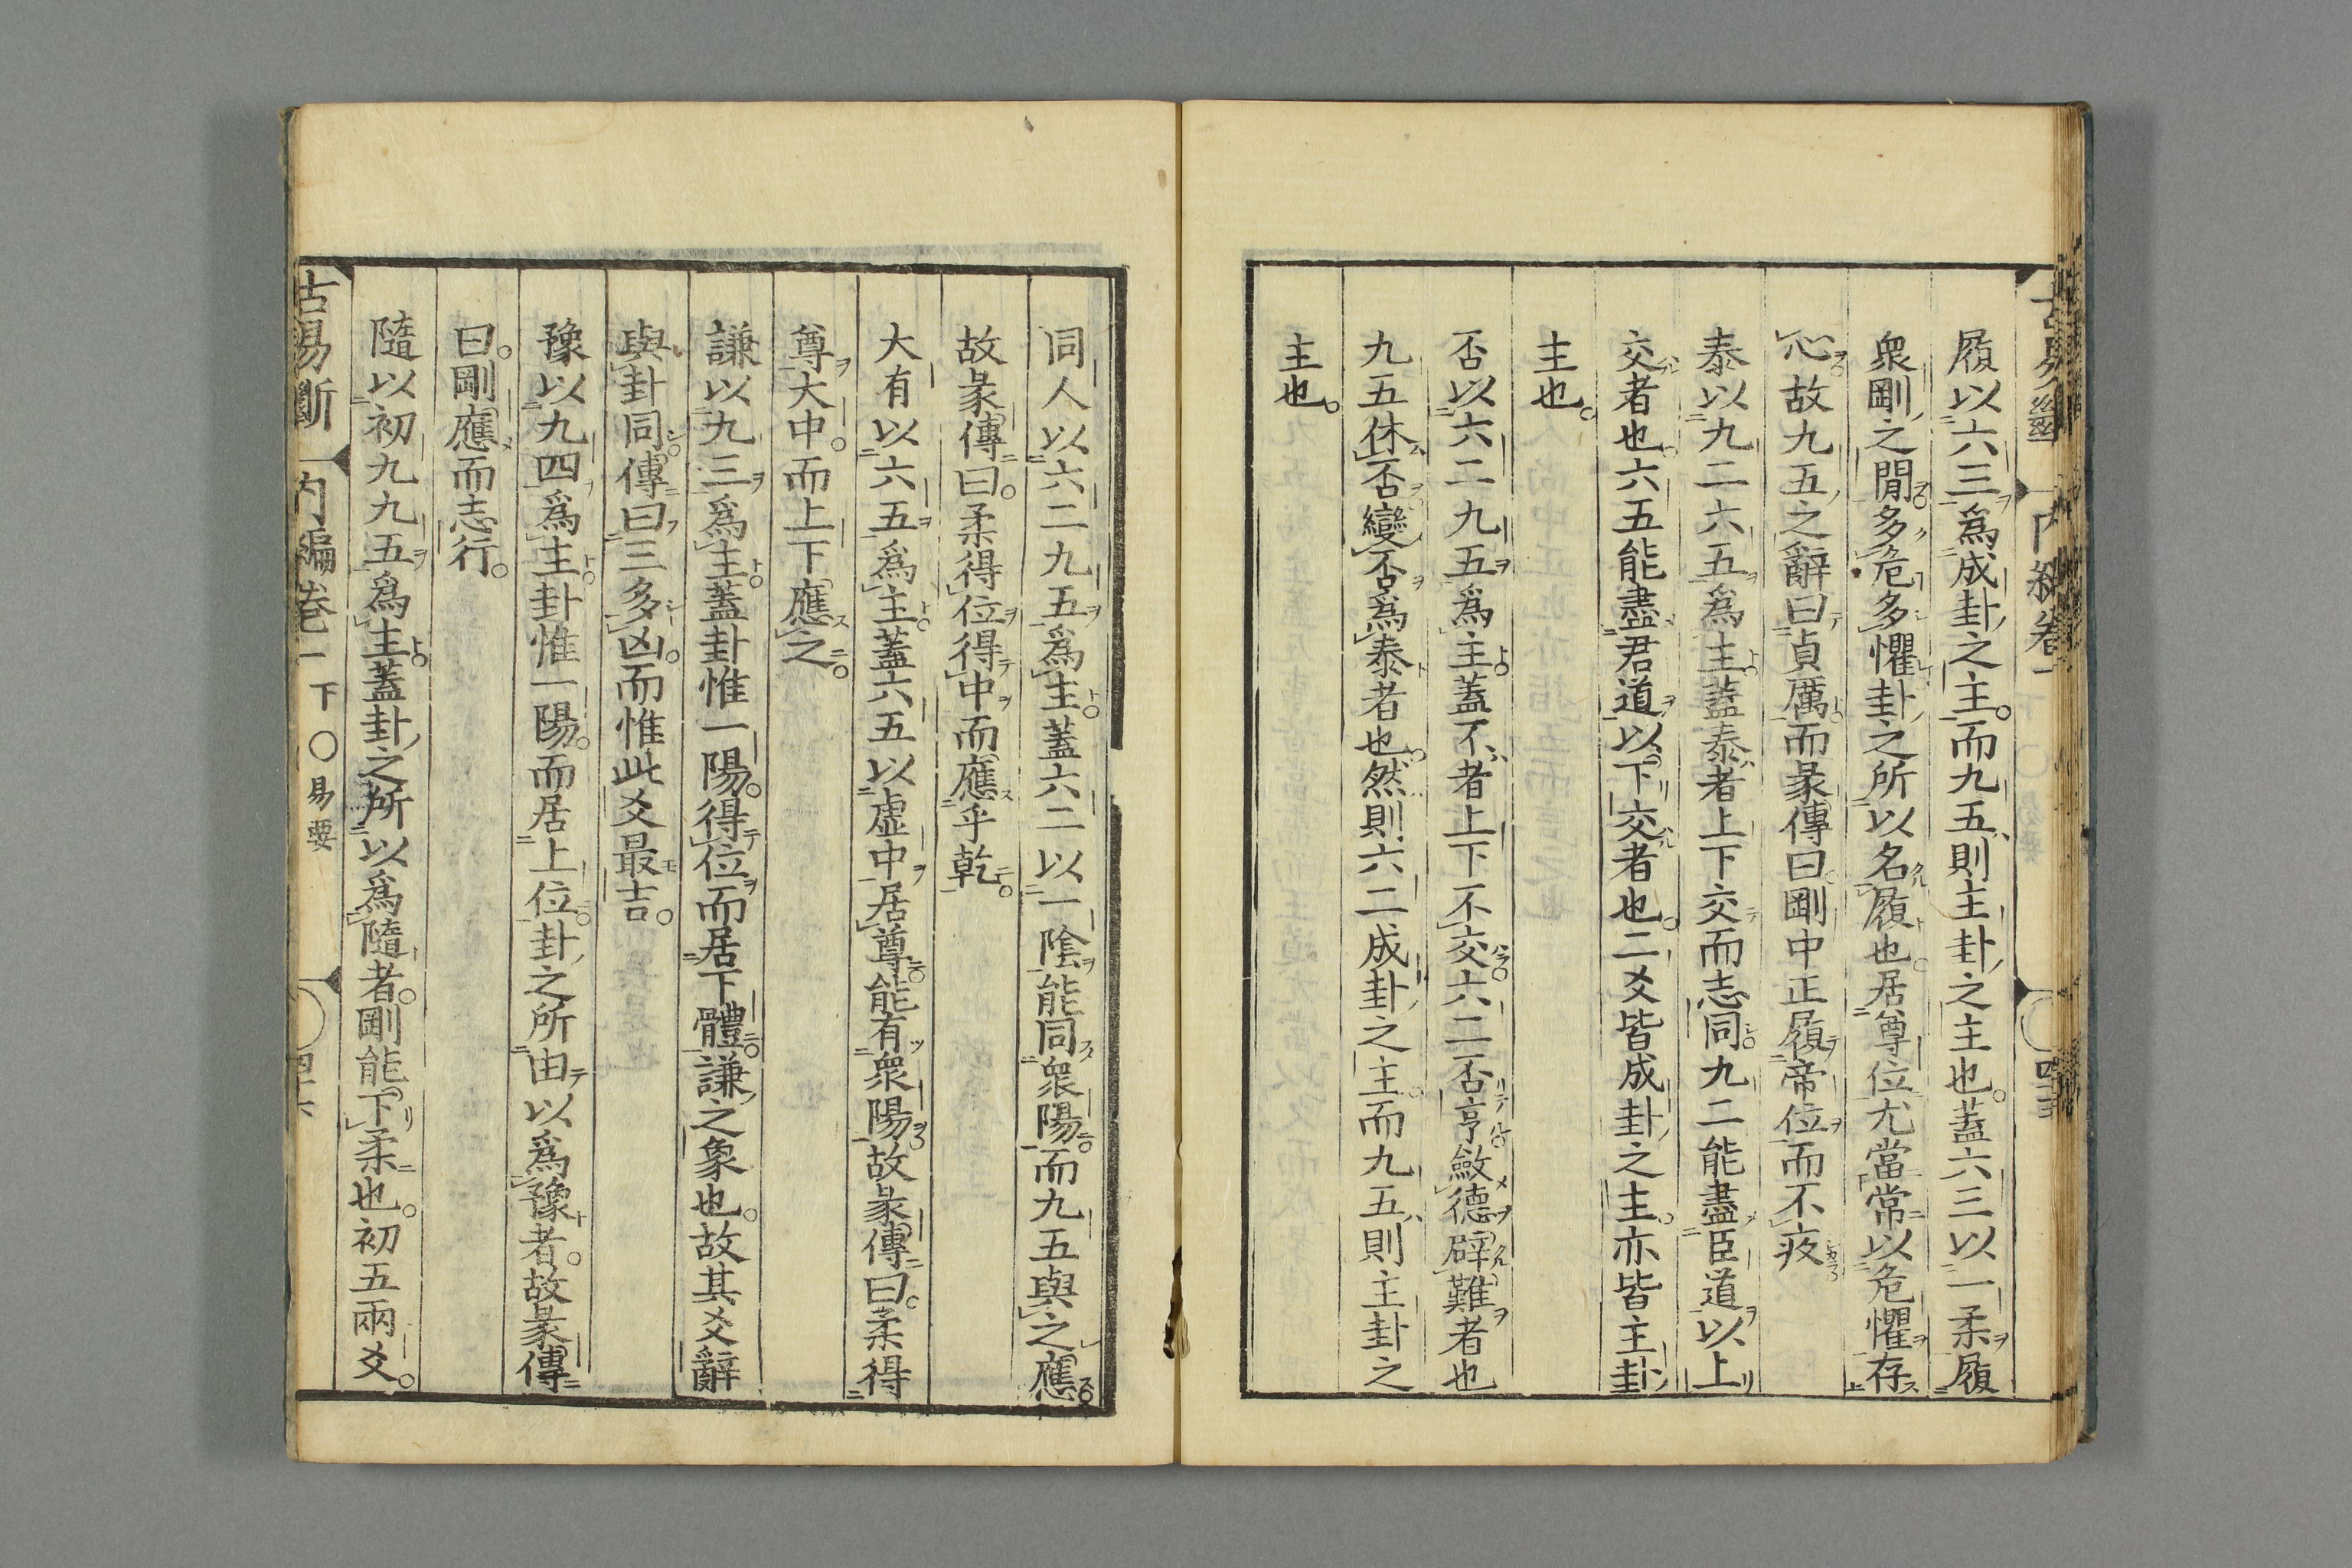 履以六三爲成卦之主。而九五則主卦之主也。蓋六三以一柔履
衆剛之閒多危多懼卦之所以名履也。居尊位尤當常以危懼存
心。故九五之辭曰貞厲。而彖傳曰。剛中正履帝位而不疚
泰以九二六五爲主。蓋泰者上下交而志同。九二能盡臣道以上
交者也。六五能盡君道以下交者也。二爻皆成卦之主。亦皆主卦
主也。
否以六二九五爲主。蓋不者上下不交。六二否亨。斂德辟難者也
九五休否變否爲泰者也。然則六二成卦之主。而九五則主卦之
主也。
同人以六二九五爲主。蓋六二以一陰能同衆陽。而九五與之應。
故彖傳曰。柔得位得中而應乎乾。
大有以六五爲主。蓋六五以虛中居尊。能有衆陽。故彖傳曰。柔得
尊大中。而上下應之。
謙以九三爲主。蓋卦惟一陽。得位而居下體。謙之象也。故其爻辭
與卦同。傳曰三多凶。而惟此爻最吉。
豫以九四爲主。卦惟一陽。而居上位。卦之所由以爲豫者。故彖傳
曰。剛應而志行。
隨以初九九五爲主。蓋卦之所以爲隨者。剛能下柔也。初五兩爻。
古易斷 內編卷一 下 〇易要 四十六